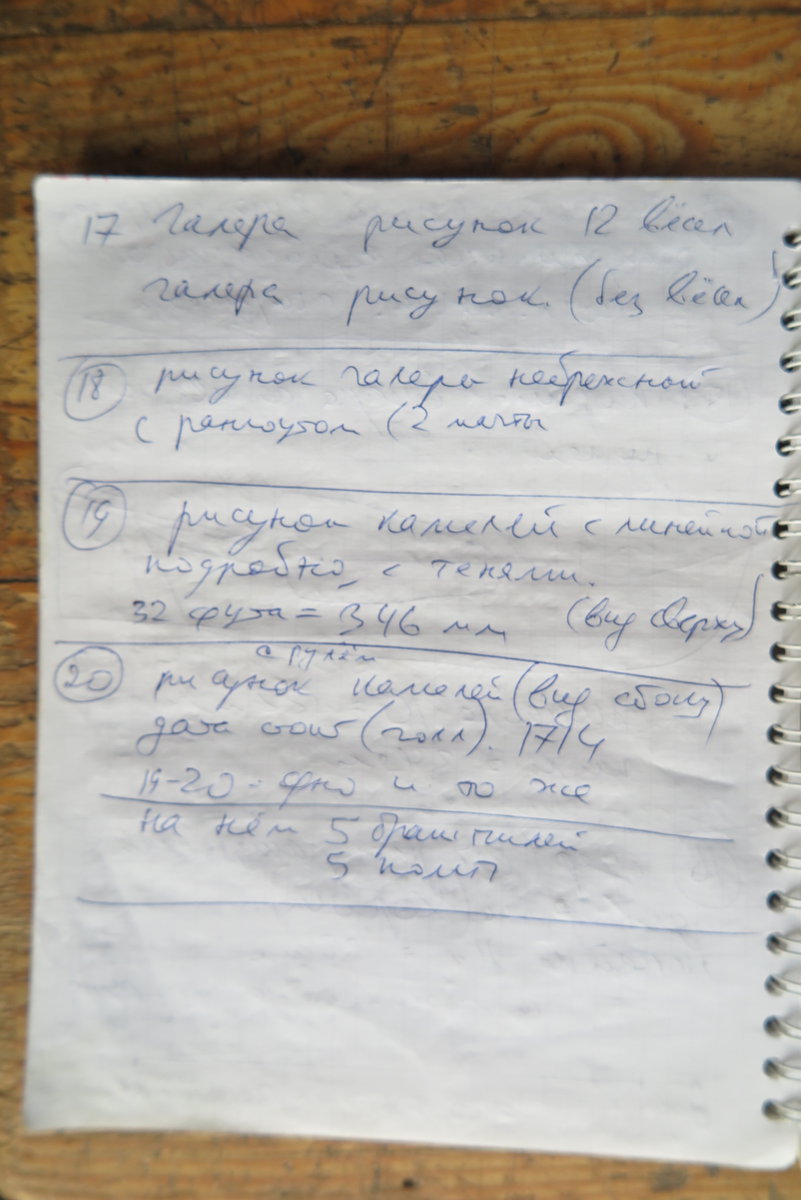 17 Галера рисунок 12 вёсел
галера рисунок. (без вёсел)
18 рисунок галеры небрежной
с рангоутом (2 мачты
19 рисунок камелей с линейкой
подробно, с тенями.
32 фута = 346 мм (вид сверху)
с рулём
20 рисунок камелей (вид сбоку)
дата стоит (голл). 1714
19-20 - одно и то же
на нём 5 брашпилей
5 помп